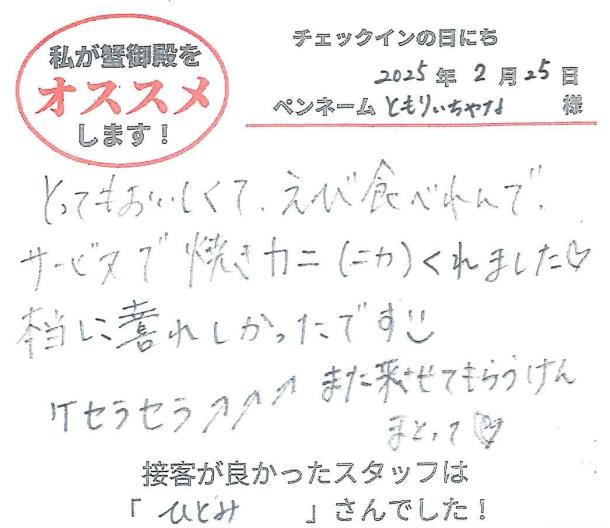 私が蟹御殿を
オススメ
します！
チェックインの日にち
2025年2月25日
ペンネーム ともりぃちゃな 様
とってもおいしくて、えび食べれんで、
サービスで焼きカニ(ニカ)くれました♡
本当に喜れしかったです
ケセラセラ↗↗↗ また来させてもらうけん
まとって♡
接客が良かったスタッフは
「ひとみ」さんでした！